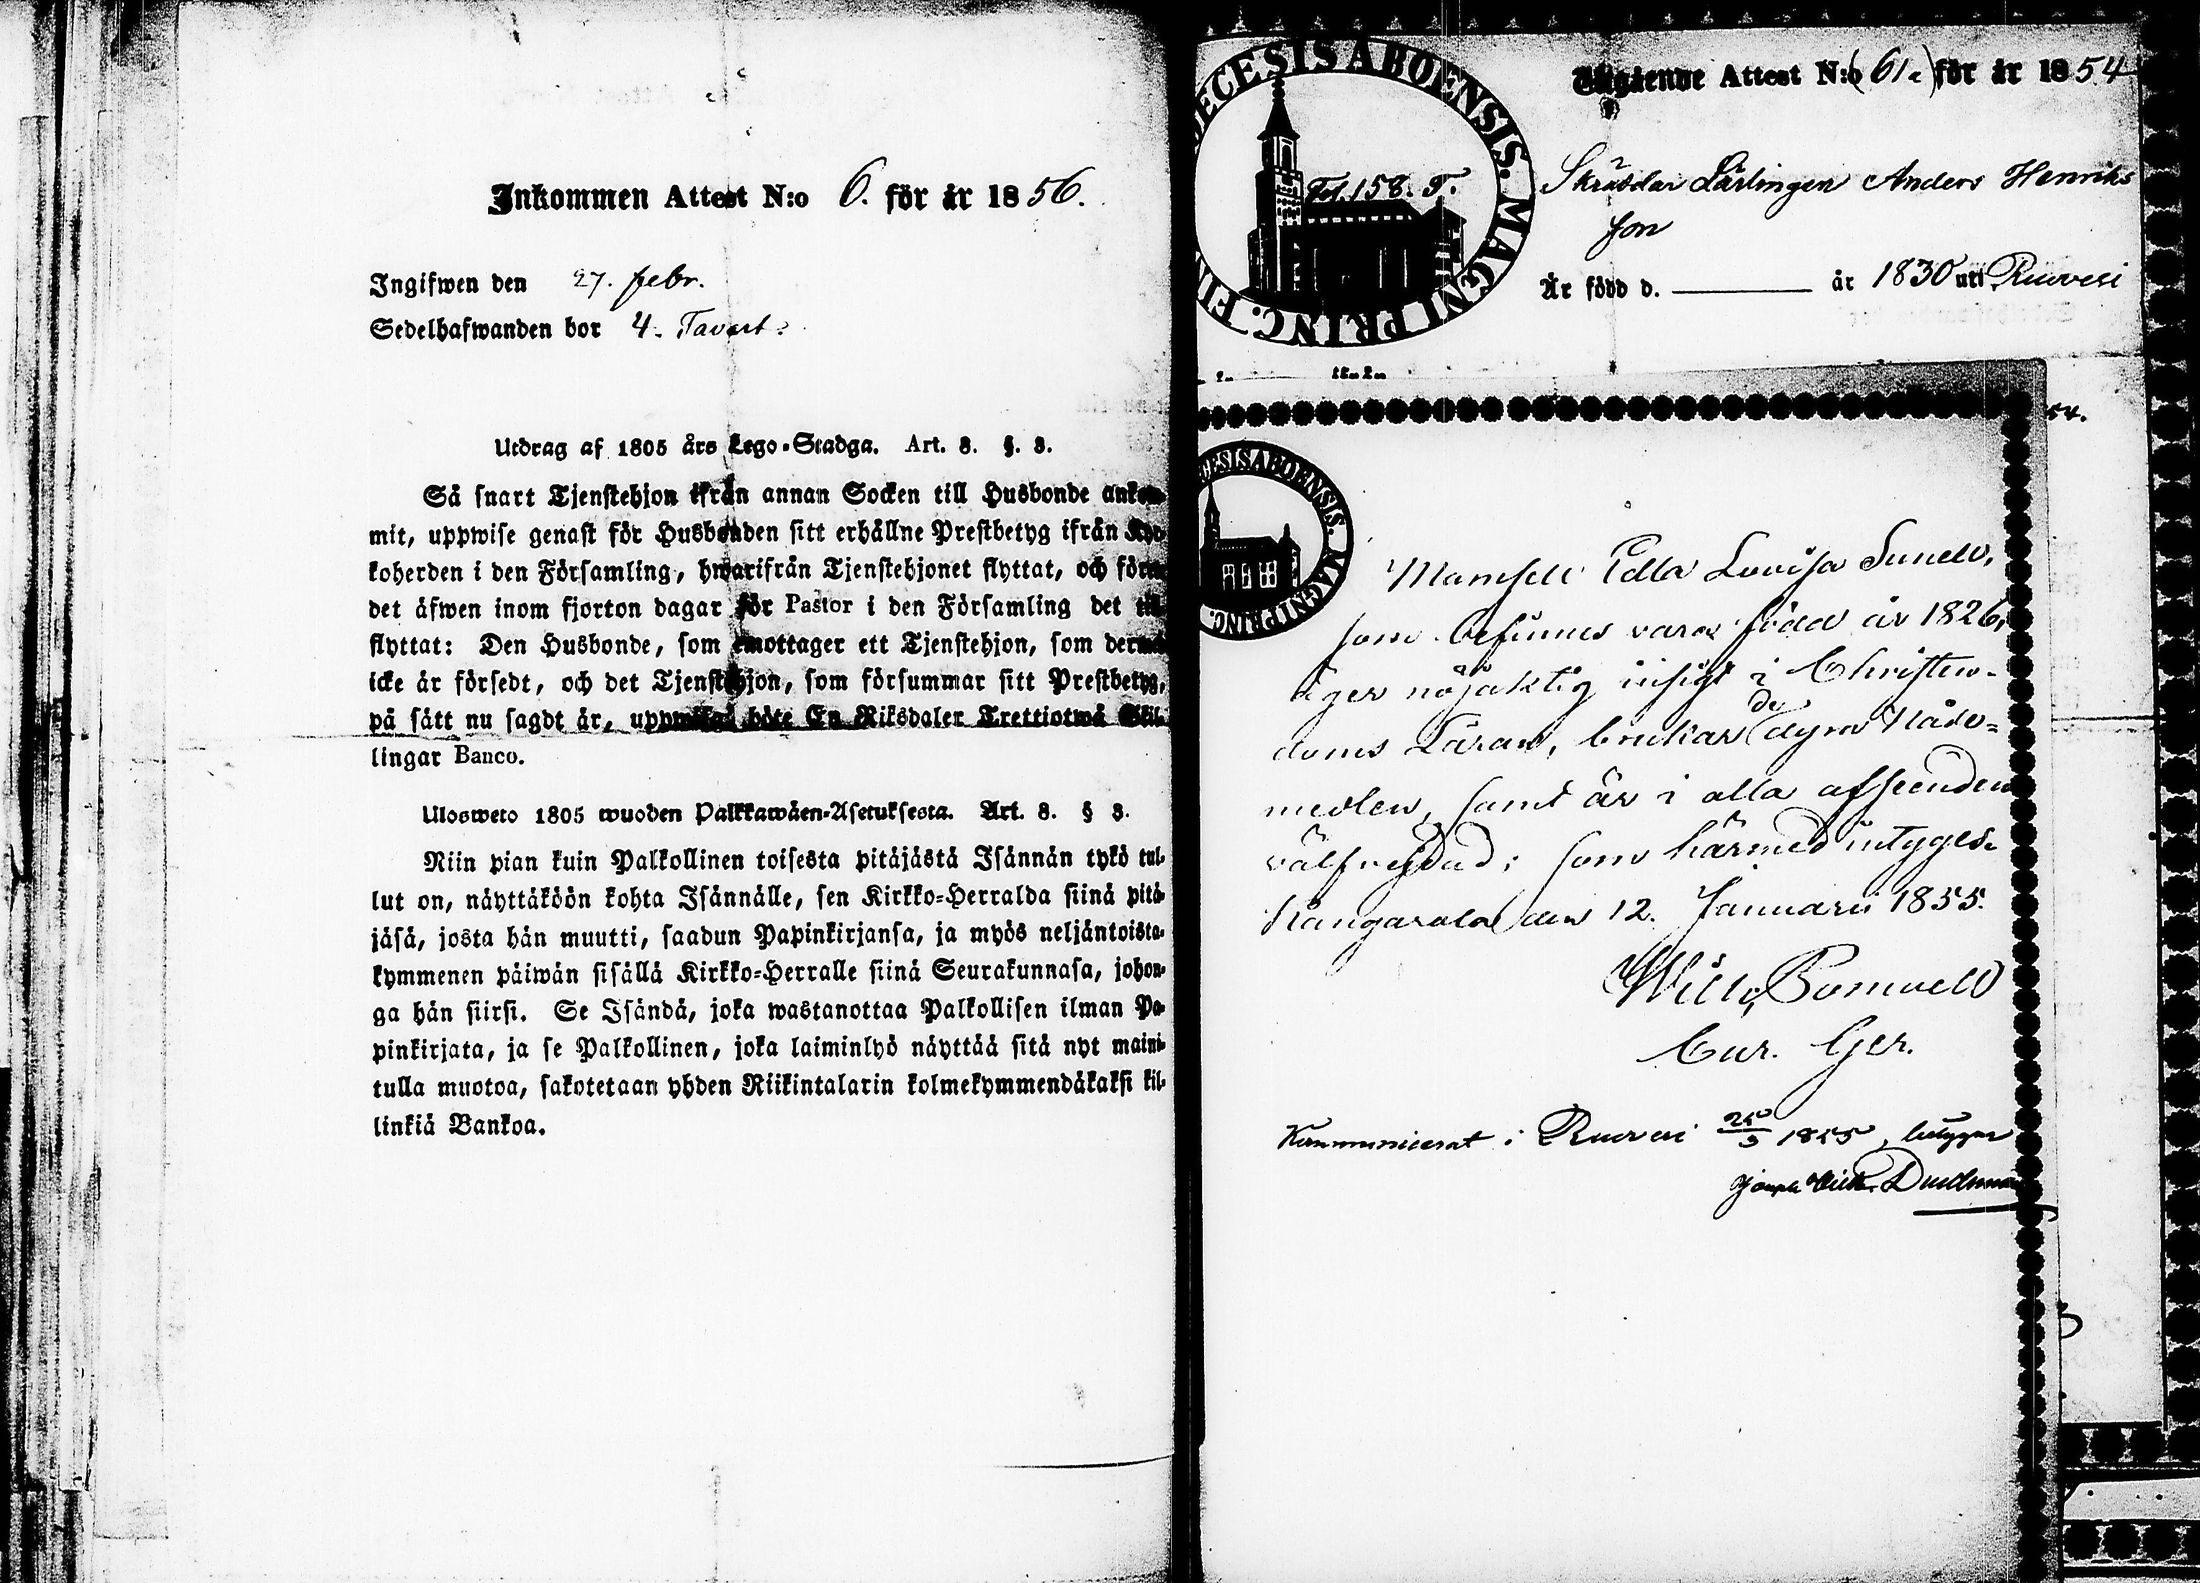 Inkommen Attest N:o 6. för år 1856.
Ingifwen den 27. febr.
Sedelhafwanden bor 4. Tavast:
Utdrag af 1805 års Lego-Stadga. Art. 8. §. 3.
Så snart Tjenstehjon ifrån annan Socken till Husbonde ankom-
mit, uppwise genast för Husbonden sitt erhållne Prestbetyg ifrån Kyr-
koherden i den Församling, hwarifrån Tjenstehjonet flyttat, och förete
det äfwen inom fjorton dagar för Pastor i den Församling det till-
flyttat: Den Husbonde, som emottager ett Tjenstehjon, som dermed
icke är försedt, och det Tjenstehjon, som försummar sitt Prestbetyg,
på sätt nu sagdt är, uppwisa, böte En Riksdaler Trettiotwå Skil-
lingar Banco.
Ulosweto 1805 wuoden Palkkawäen-Asetuksesta. Art. 8. § 3.
Niin pian kuin Palkollinen toisesta pitäjästä Isännän tykö tul-
lut on, näyttäköön kohta Isännälle, sen Kirkko-Herralda siinä pitä-
jäsä, josta hän muutti, saadun Papinkirjansa, ja myös neljäntoista-
kymmenen päiwän sisällä Kirkko-Herralle siinä Seurakunnasa, johon-
ga hän siirsi. Se Isändä, joka wastanottaa Palkollisen ilman Pa-
pinkirjata, ja se Palkollinen, joka laiminlyö näyttää sitä nyt maini-
tulla muotoa, sakotetaan yhden Riikintalarin kolmekymmendäkaksi kil-
linkiä Bankoa.
ECESIS ABOENSIS. MAGNI PRINC. FIN
Fol. 158. T.
Utgående Attest N:o (61 a) för år 1854
Skräddar Lärlingen Anders Henriks
son
Är född d. år 1830 uti Ruovesi
54.
ECESIS ABOENSIS. MAGNI PRINC.
Mamsell Edla Lovisa Sunell,
som befinnes vara född år 1826,
äger nöjaktig insigt i Christen-
doms Läran, brukar de dyra Nåde-
medlen, samt är i alla afseenden
välfrejdad; som härmed intygas.
Kangasala den 12. Januarii 1855.
Wilh. Bomwell
Cur. Ger.
Kommunicerat i Ruovesi 25/3 1855, betygar